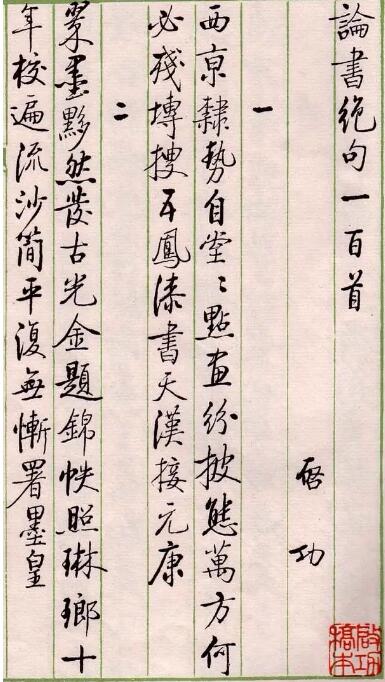 論書絕句一百首
啓功
一
西京隸勢自堂〻點畫紛披態萬方何
必殘塼搜五鳳漆書天漢接元康
二
翠墨黟然發古光金題錦帙照琳瑯十
年校遍流沙簡平復無慚署墨皇